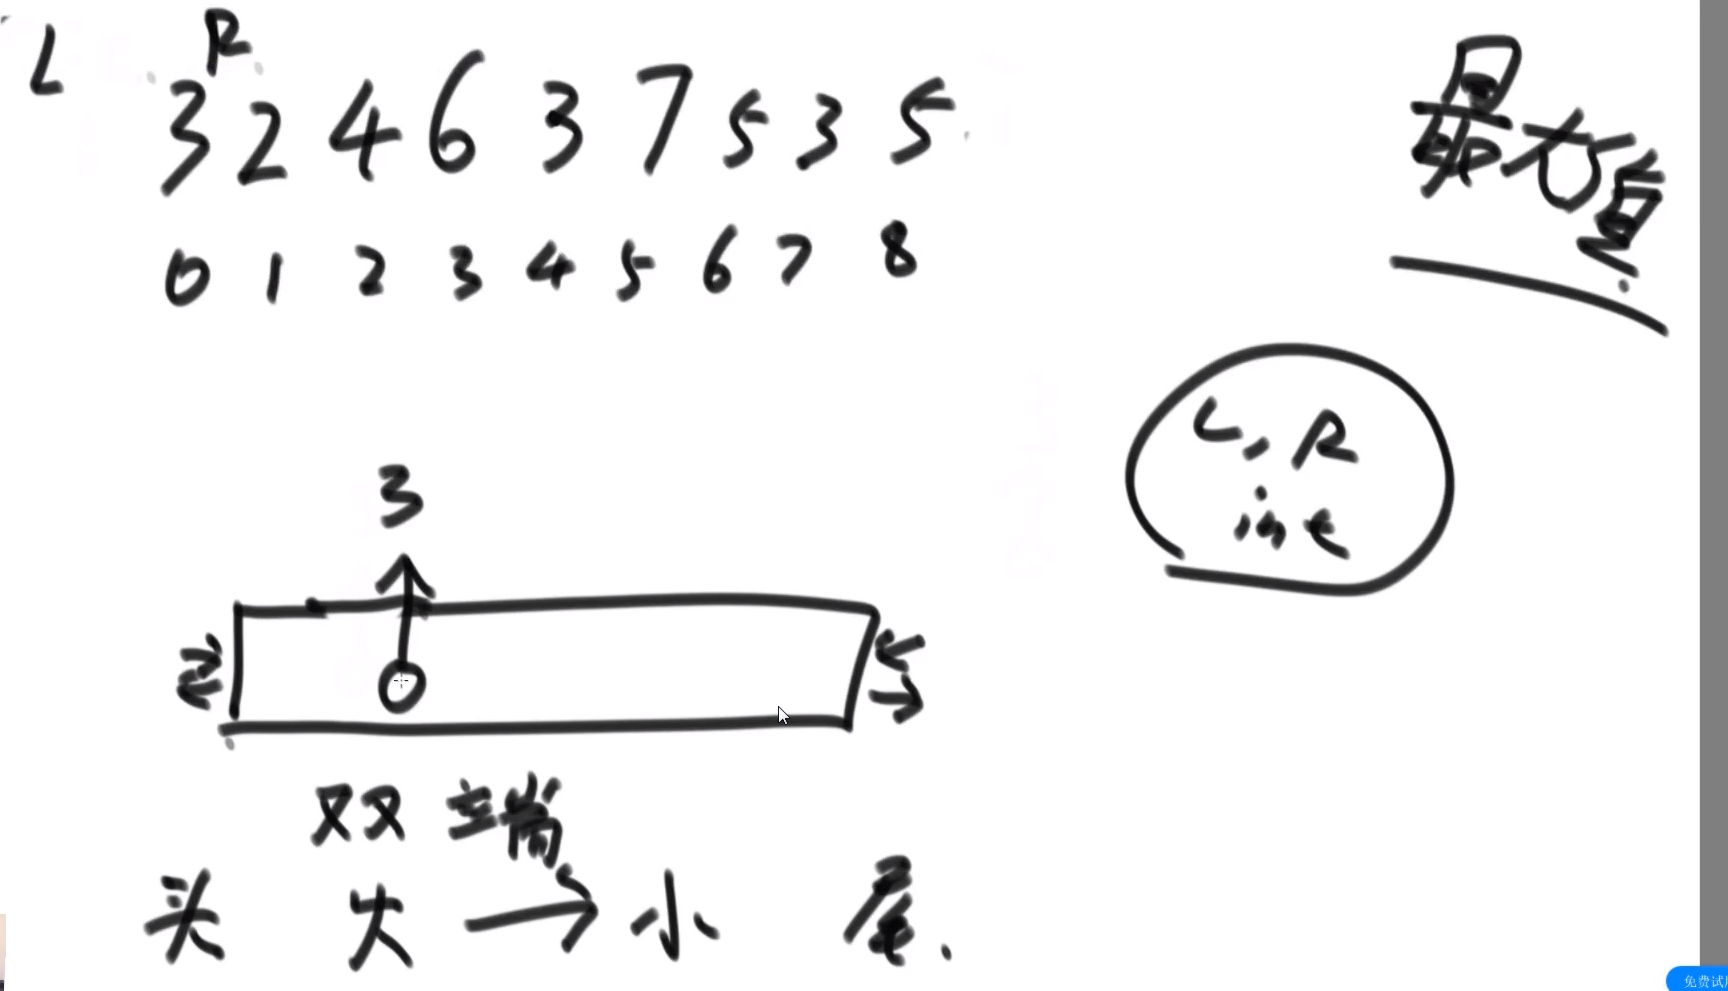 L R
3 2 4 6 3 7 5 3 5
0 1 2 3 4 5 6 7 8
最大值
L, R
int
3
0
双端
头 大 → 小 尾
免费试